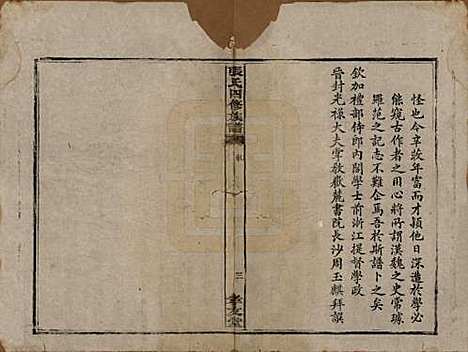 怪也今辛敀年富而才穎他日深邃於學必
能窺古作者之用心將所謂漢魏之史常璩
羅范之記志不難企焉吾於斯譜卜之矣
欽加禮部侍郎內閣學士前浙江提督學政
晉封光祿大夫掌教嶽麓書院長沙周玉麒拜譔
張氏四修族譜
三
孝友堂